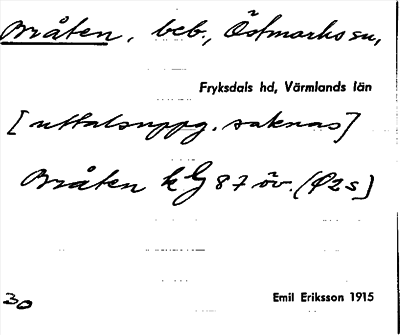 Bråten, beb., Östmarks sn,
Fryksdals hd, Värmlands län
[uttalsuppg. saknas]
Bråten k G 87 öv. (Ø2s)
30
Emil Eriksson 1915